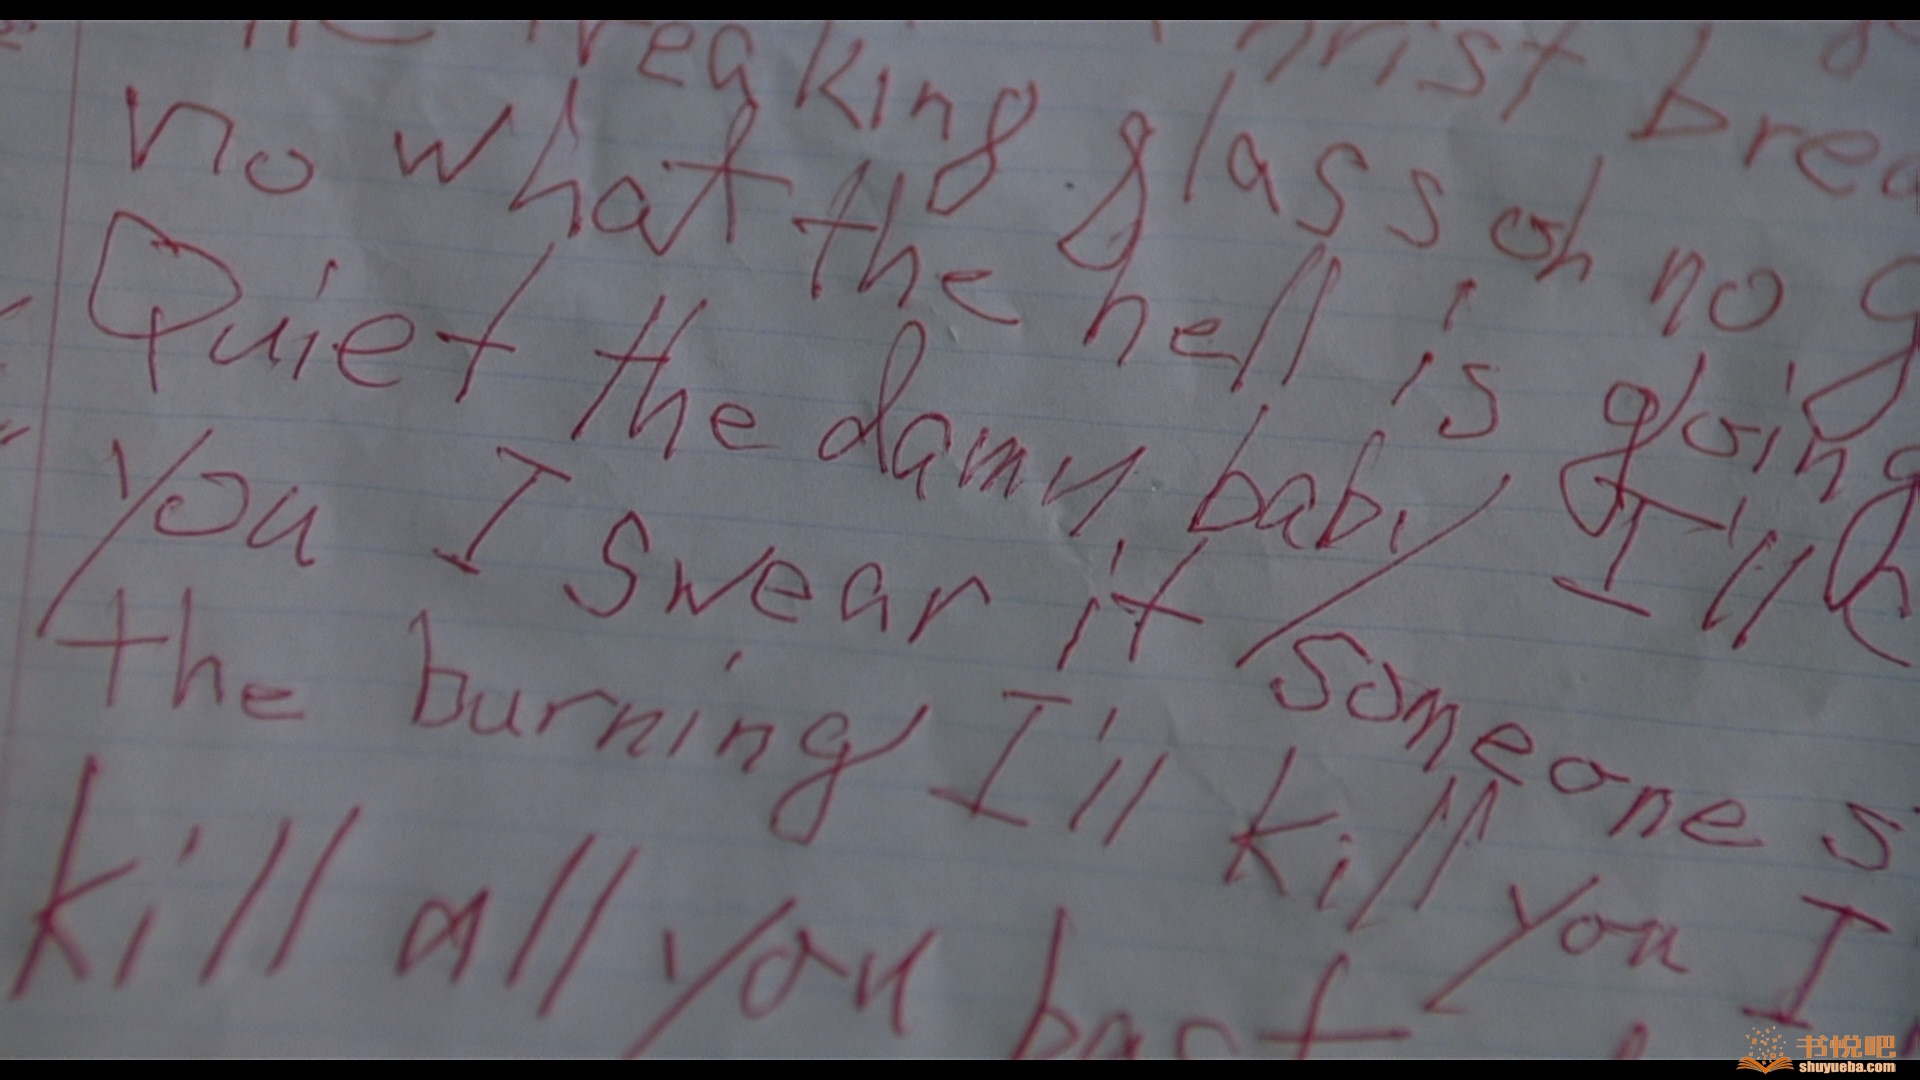 hrist brea
reaking glass oh no g
no what the hell is going
Quiet the damn baby I'll
you I swear it someone s
the burning I'll kill you I
kill all you bast
书悦吧
shuyueba.com